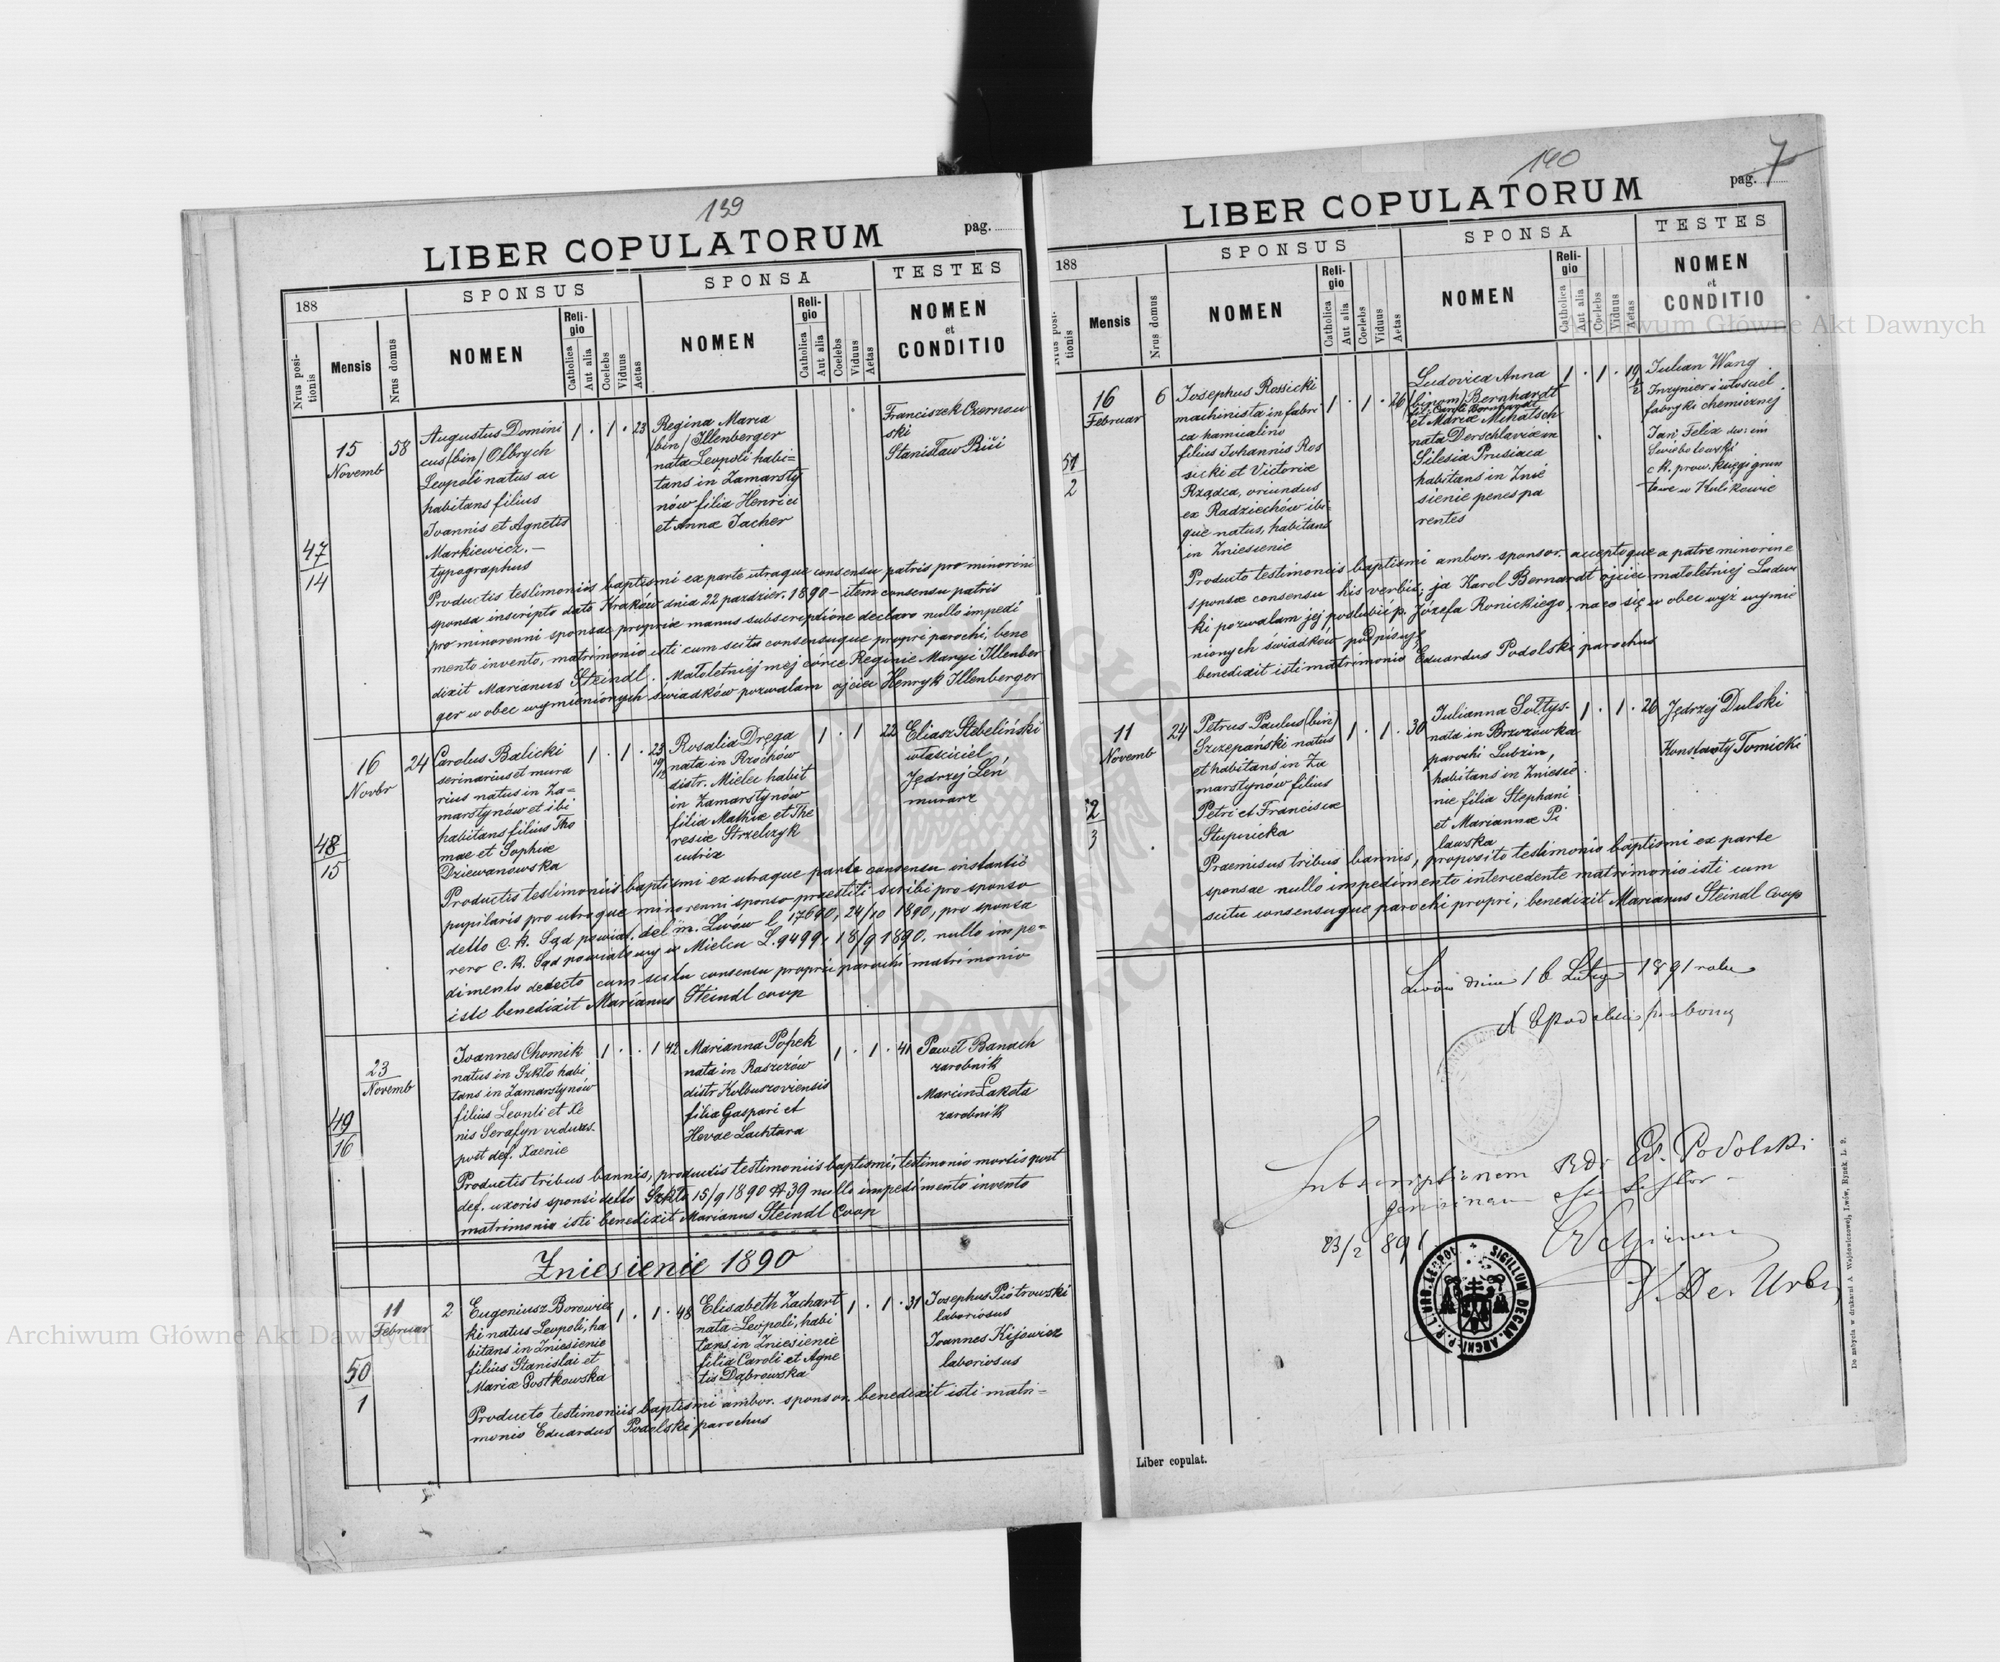 139
LIBER COPULATORUM
pag.
188
SPONSUS
SPONSA
TESTES
Nrus posi-
tionis
Mensis
Nrus domus
NOMEN
Reli-
gio
Catholica
Aut alia
Coelebs
Viduus
Aetas
NOMEN
Reli-
gio
Catholica
Aut alia
Coelebs
Viduus
Aetas
NOMEN
et
CONDITIO
47
14
15
Novemb
58
Augustus Domini
cus (bin) Olbrych
Leopoli natus ac
habitans filius
Joannis et Agnetis
Markiewicz. —
typographus
1 . 1 . 23
Regina Maria
(bin) Illenberger
nata Leopoli habi-
tans in Zamarsty
nów filia Henrici
et Annae Jacher
Franciszek Czernow
ski
Stanisław
Productis testimoniis baptismi ex parte utraque consensu patris pro minoreni
sponsa inscripto dato Kraków dnia 22 paździer. 1890 – item consensu patris
pro minorenni sponsae propriae manus subscriptione declaro nullo impedi
mento invento, matrimonio isti cum scitu consensuque proprii parochi, bene
dixit Marianus Steindl. Małoletniej mej córce Reginie Maryi Illenber
ger w obec wymienionych świadków pozwalam ojciec Henryk Illenberger
48
15
16
Novbr
24
Carolus Balicki
serinarius et mura
rius natus in Za=
marstynów et ibi
habitans filius Tho
mae et Sophiae
Dziewanowska
1 . 1 . 23
Rosalia Dręga
nata in Rzochów
distr. Mielec habit
in Zamarstynów
filia Mathiae et The
resiae Strzelczyk
1 . 1 22
Eliasz Stebeliński
właściciel
Jędrzej Leń
murarz
Productis testimoniis baptismi ex utraque parte consensu instantis
pupilaris pro utroque minorenni sponso praestiti scribi pro sponso
detto C. K. Sąd powiat. del m. Lwów l. 17690, 24/10 1890, pro sponsa
vero C. K. Sąd powiatowy w Mielcu L. 9499. 18/9 1890. nullo impe=
dimento detecto cum scitu consensu proprii parochi matrimonio
isti benedixit Marianus Steindl coop
49
16
23
Novemb
Joannes Chomik
natus in Szkło habi
tans in Zamarstynów
filius Leonti et Xe
nis Serafyn viduus.
post def. Xaenie
1 . . 1 42
Marianna Popek
nata in Raszczów
distr Kolbuszoviensis
filia Gaspari et
Hevae Lachtara
1 . 1 . 41
Paweł Banach
zarobnik
Marcin Łakota
zarobnik
Productis tribus bannis, productis testimoniis baptismi, testimonio mortis post
def. uxoris sponsi detto Szkło 15/9 1890 № 39 nullo impedimento invento
matrimonio isti benedixit Marianus Steindl Coop
Zniesienie 1890
50
1
11
Februar
2
Eugeniusz Borowiec
ki natus Leopoli, ha
bitans in Zniesienie
filius Stanislai et
Mariae Postkowska
1 . 1 . 48
Elisabeth Zachart
nata Leopoli, habi
tans in Zniesienie
filia Caroli et Agne
tis Dąbrowska
1 . 1 . 31
Josephus Piotrowski
laboriosus
Joannes Kijowicz
laboriosus
Producto testimoniis baptismi ambor. sponsor. benedixit isti matri=
monio Eduardus Podolski parochus
140
LIBER COPULATORUM
pag. 7
188
SPONSUS
SPONSA
TESTES
Nrus posi-
tionis
Mensis
Nrus domus
NOMEN
Reli-
gio
Catholica
Aut alia
Coelebs
Viduus
Aetas
NOMEN
Reli-
gio
Catholica
Aut alia
Coelebs
Viduus
Aetas
NOMEN
et
CONDITIO
51
2
16
Februar
6
Josephus Rossicki
machinista in fabri
ca hamicalino
filius Johannis Ros
sicki et Victoriae
Rządca, oriundus
ex Radziechów ibi=
que natus, habitans
in Zniesienie
1 . 1 . 26
Ludovica Anna
(binom) Bernhardt
fil. Caroli Bernhardt
et Mariae Mihatsch
nata Derschlaviae in
Silesia Prusiaca
habitans in Znie
sienie penes pa
rentes
1 . 1 . 19
Julian Wang
Inżynier i właściciel
fabryki chemicznej
Jan Felix
Świebolowski
c. k. prow. księgi grun
towe w Kulikowie
Producto testimoniis baptismi ambor. sponsor. acceptoque a patre minorine
sponsae consensu his verbis; ja Karol Bernardt ojciec małoletniej Ludwi
ki pozwalam jej poślubić p. Józefa Ronickiego, na co się w obec wyż wymie
nionych świadków podpisuję
benedixit isti matrimonio Eduardus Podolski parochus
52
3
11
Novemb
24
Petrus Paulus (bin)
Szczepański natus
et habitans in Za
marstynów filius
Petri et Franciscae
Stupnicka
1 . 1 . 30
Julianna Sołtys-
nata in Brzozówka
parochi Lubzin,
habitans in Zniesie
nie filia Stephani
et Mariannae Pi
lawska
1 . 1 . 26
Jędrzej Dulski
Konstanty Tomicki
Praemisus tribus bannis, proposito testimonio baptismi ex parte
sponsae nullo impedimento intercedente matrimonio isti cum
scitu consensuque parochi proprii, benedixit Marianus Steindl Coop
Lwów dnia 16 Lutego 1891 roku
Subscriptionem Rdi Ed. Podolski
genuinam esse testor
23/2 891
V. Dec. Urb.
SIGILLUM DECAN. ARCHI-P. R. L. URB. LEOPOL.
Liber copulat.
Do nabycia w drukarni A. Wajdowiczowej, Lwów, Rynek L. 9.
Archiwum Główne Akt Dawnych
Archiwum Główne Akt Dawnych